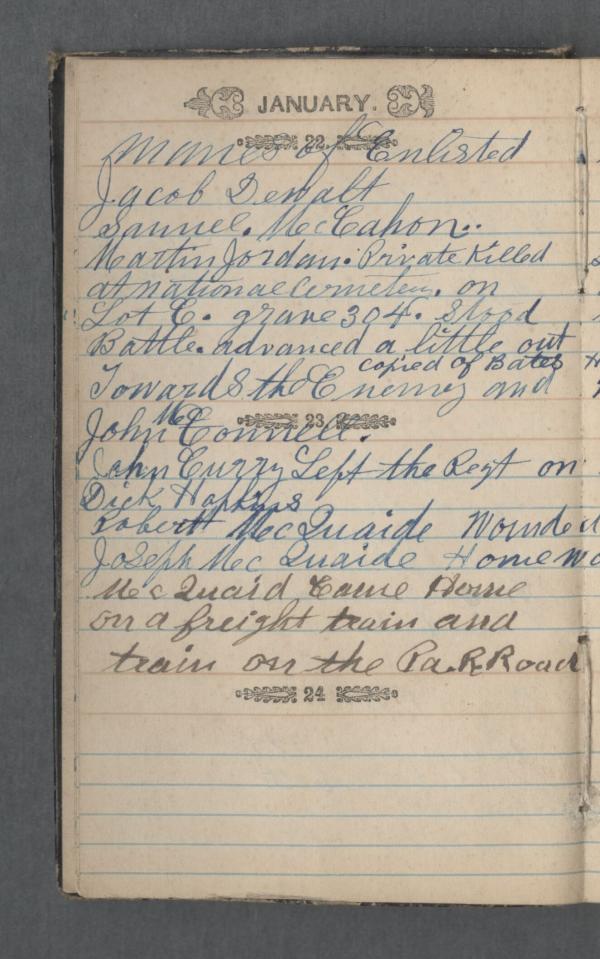 JANUARY.
22
Names of Enlisted
Jacob Dewalt
Samuel. McCahon..
Martin Jordan. Private Killed
at national Cemetery. on
Lot E. grave 304. Stood
Battle. advanced a little out
copied of Bates
Towards the Enemy and
23
John McConnell.
John Curry Left the Regt on
Dick Hopkins
Robert McQuaide Wounded
Joseph McQuaide Home
McQuaid Came Home
on a freight train and
train on the Pa. R Road
24